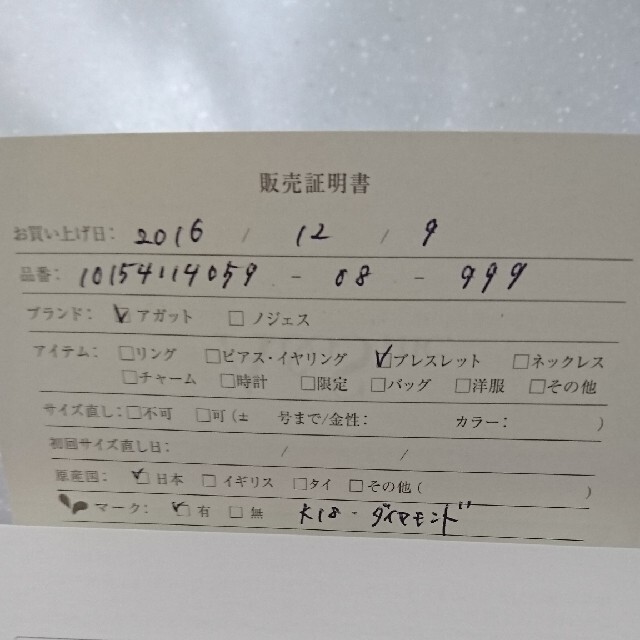 販売証明書
お買い上げ日: 2016 / 12 / 9
品番: 10154114059 - 08 - 999
ブランド: ☑アガット □ノジェス
アイテム: □リング □ピアス・イヤリング ☑ブレスレット □ネックレス
□チャーム □時計 □限定 □バッグ □洋服 □その他
サイズ直し: □不可 □可(± 号まで/金性: カラー: )
初回サイズ直し日: / /
原産国: ☑日本 □イギリス □タイ □その他( )
マーク: ☑有 □無 K18 - ダイヤモンド